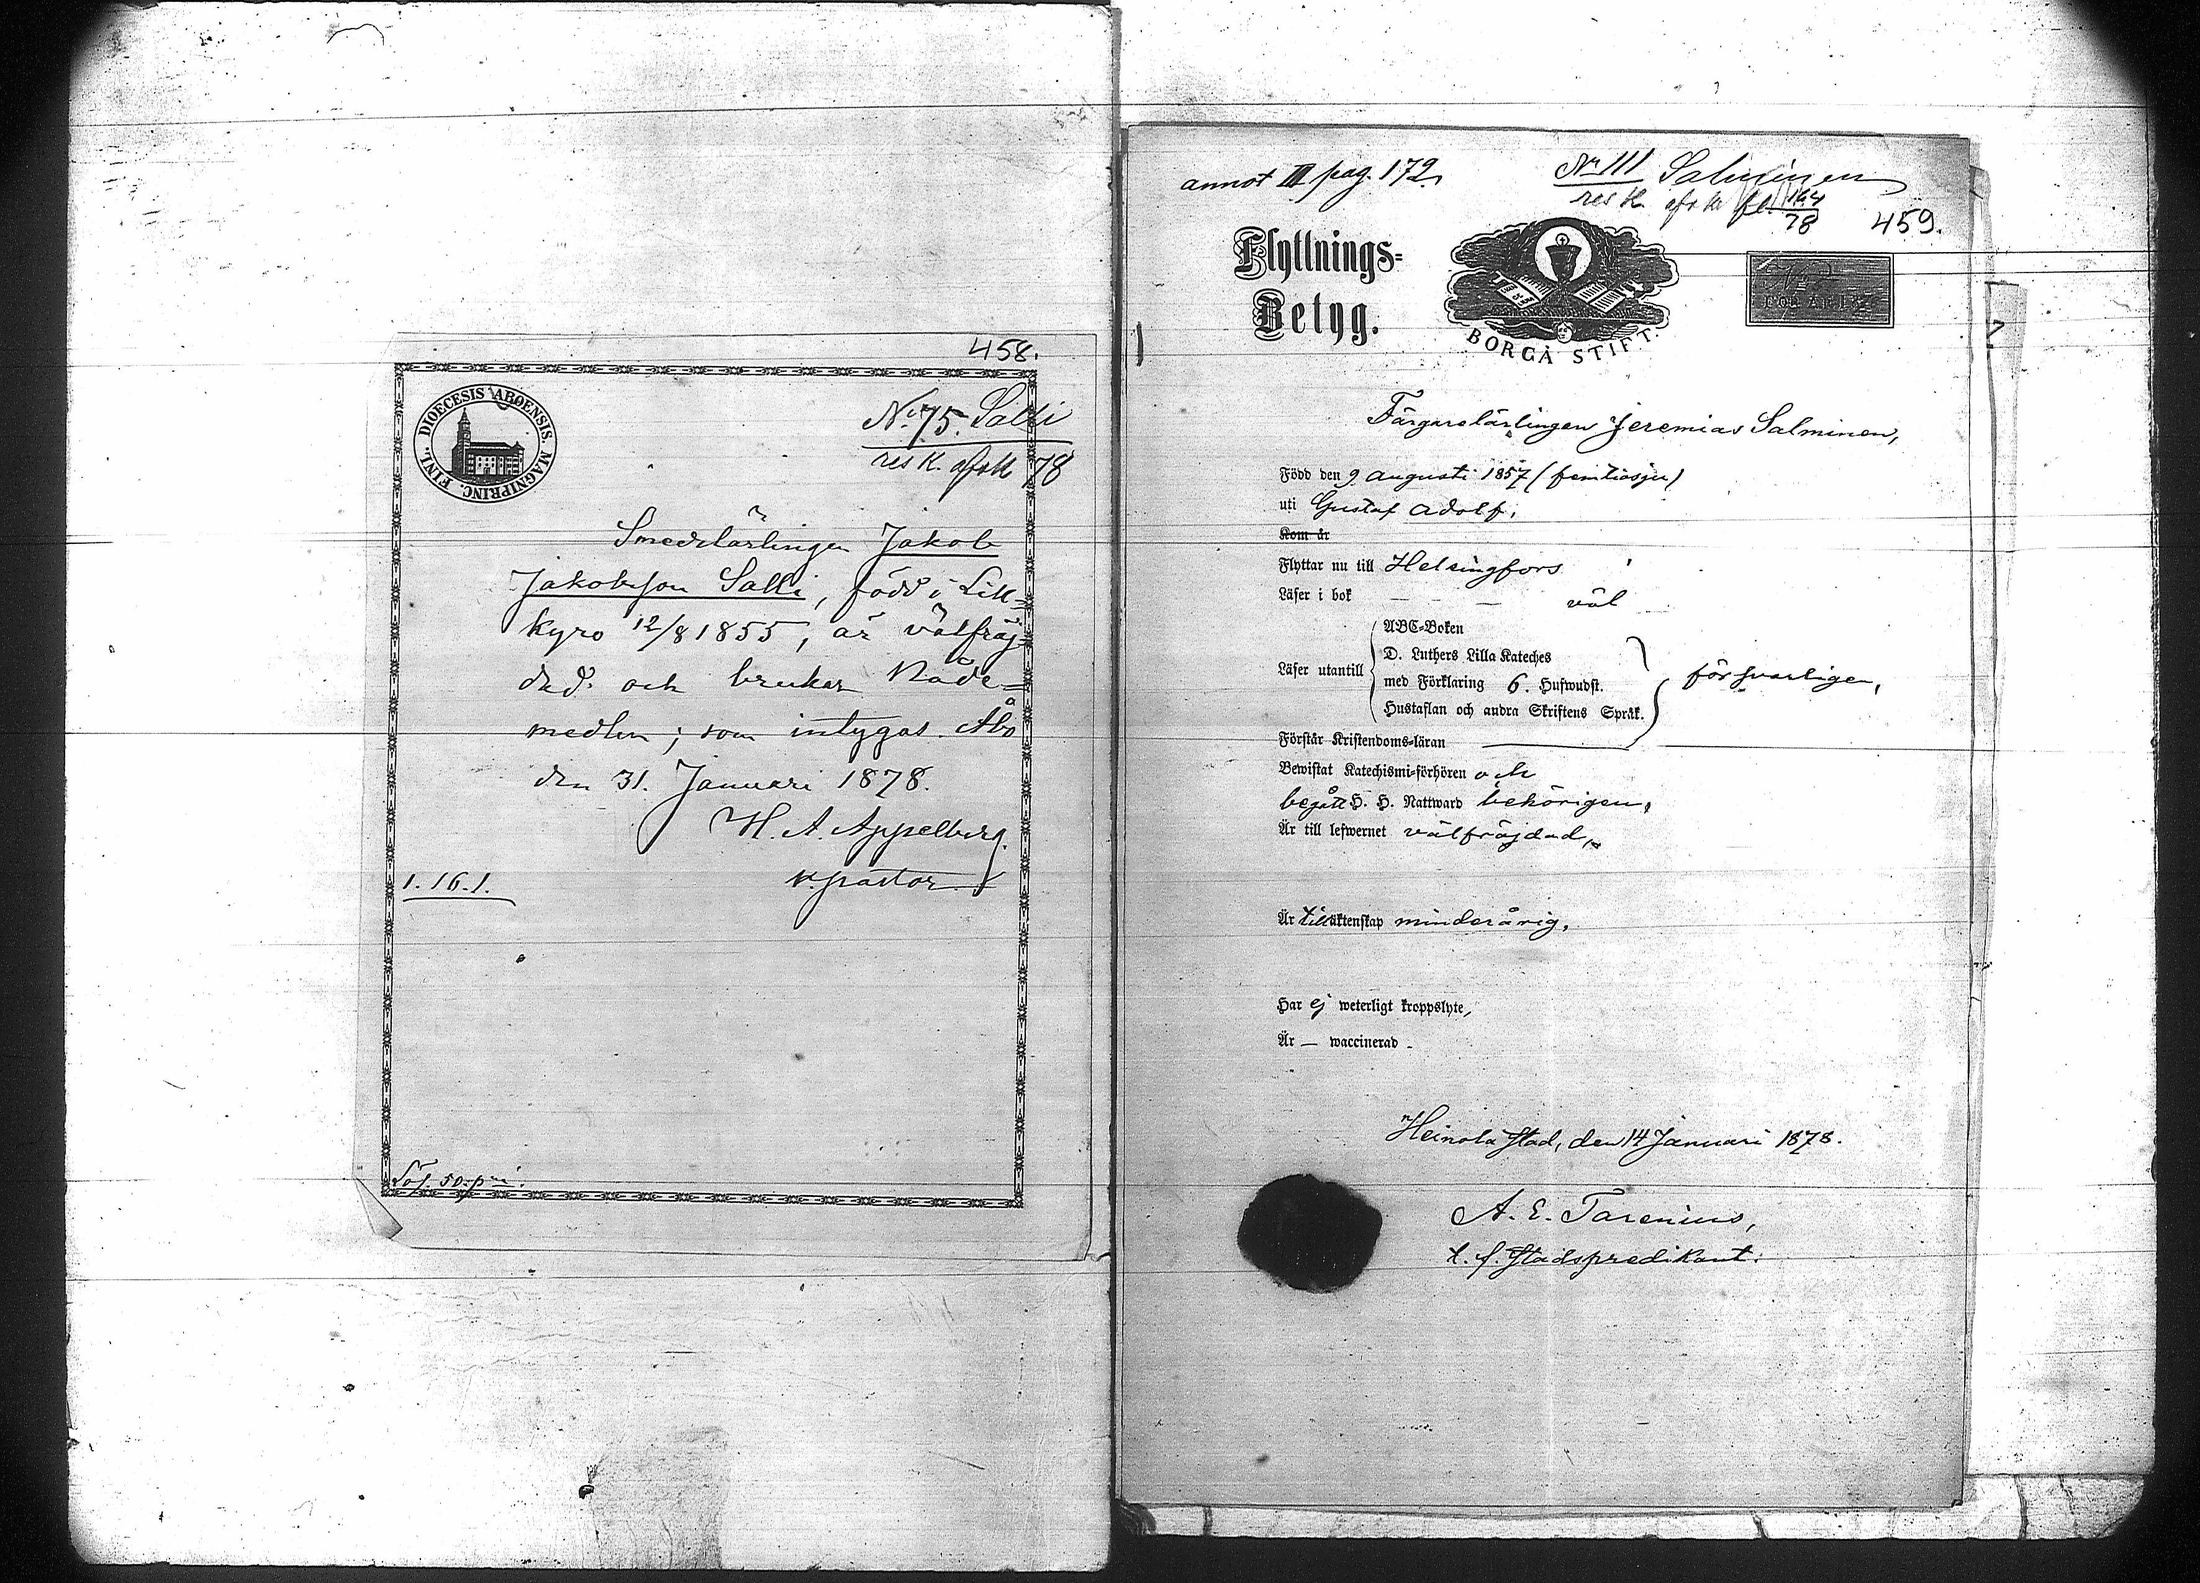 458.
DIOECESIS ABOENSIS. MAGNIPRINC. FINL.
No 75. Salli
res k. 78
Smedslärlingen Jakob
Jakobsson Salli, född i Lill-
kyro 12/8 1855, är välfräj-
dad och brukar Nåde-
medlen; som intygas. Åbo
den 31. Januari 1878.
H. A. Appelberg.
v. pastor
1. 16. 1.
Lös. 50. pni.
annot III pag. 172.
Nr 111 Salminen
res k. 78
459.
Flyttnings-
Betyg.
BORGÅ STIFT.
Färgarelärlingen Jeremias Salminen,
Född den 9 Augusti 1857 (femtiosju)
uti Gustaf Adolf,
Kom år
Flyttar nu till Helsingfors
Läser i bok — — väl
ABC-Boken
D. Luthers Lilla Kateches
Läser utantill med Förklaring 6. Hufwudst. försvarligen,
Hustaflan och andra Skriftens Språk.
Förstår Kristendoms-läran
Bewistat Katechismi-förhören och
begått H. H. Nattward behörigen,
Är till lefwernet välfräjdad,
Är till äktenskap minderårig,
Har ej weterligt kroppslyte,
Är — waccinerad -
Heinola stad, den 14 Januari 1878.
A. E.
t. f. Stadspredikant.